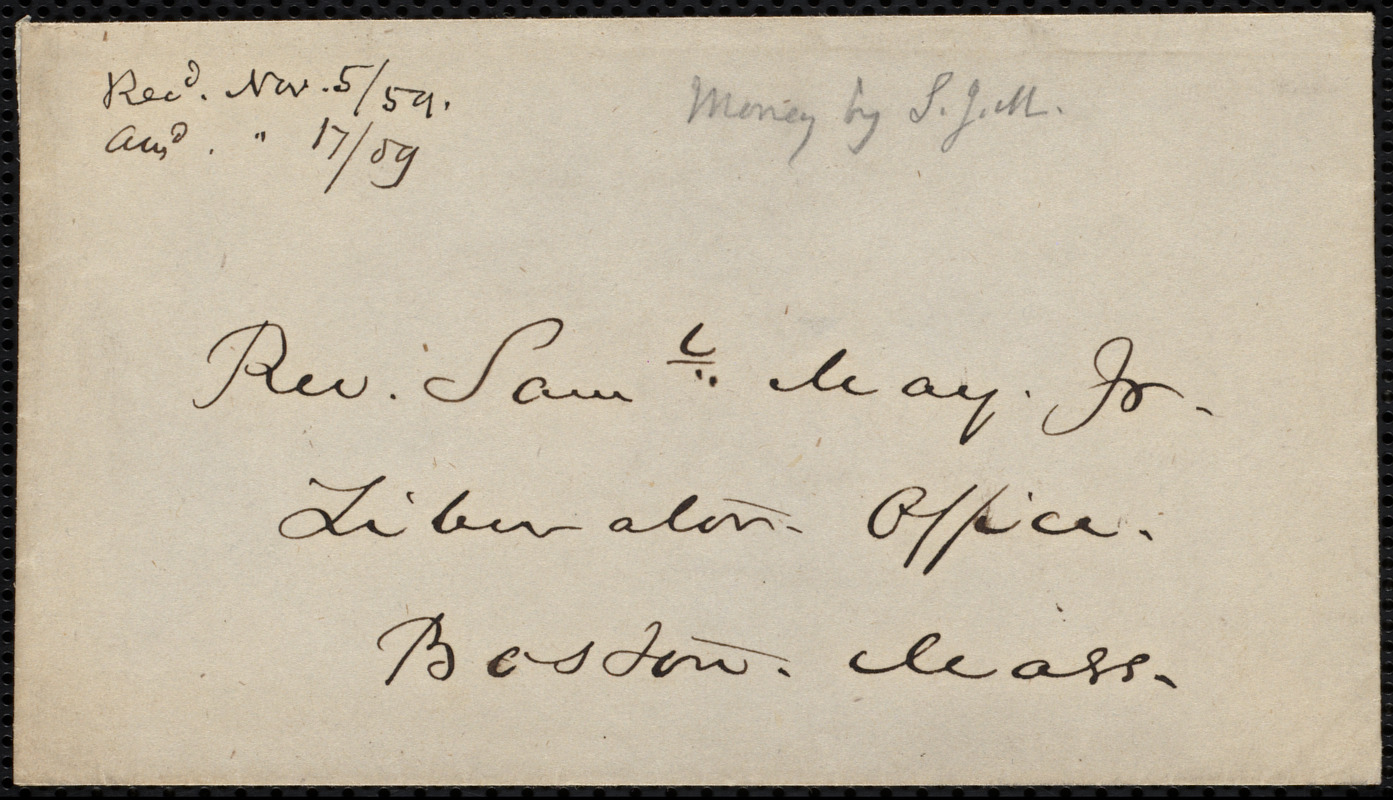 Recd. Nov. 5/59.
Ansd. " 17/59
Money by S. J. M.
Rev. Saml. May. Jr.
Liberator Office.
Boston. Mass.